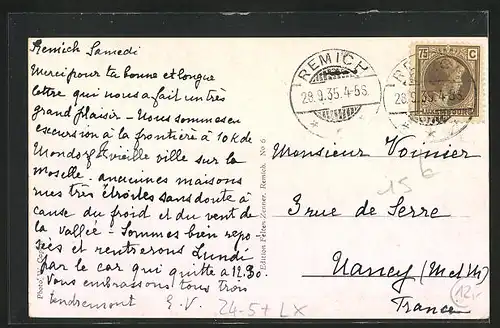 Remich Samedi
Merci pour ta bonne et longue
lettre qui nous a fait un très
grand plaisir - Nous sommes en
excursion à la frontière à 10 K de
Mondorf vieille ville sur la
Moselle - anciennes maisons
rues très étroites sans doute à
cause du froid et du vent de
la vallée - Sommes bien repo
sées et rentrerons Lundi
par le car qui quitte à 12.30.
Vous embrassons tous trois
tendrement E.V.
24-5+ LX
Edition Felten-Zenner, Remich. No 6
REMICH
28.9.35.4-5S.
REMICH
28.9.35.4-5S.
75 C
LUXEMBOURG
Monsieur Voinier
15 b
3 rue de Serre
Nancy (M et M)
France
12,-